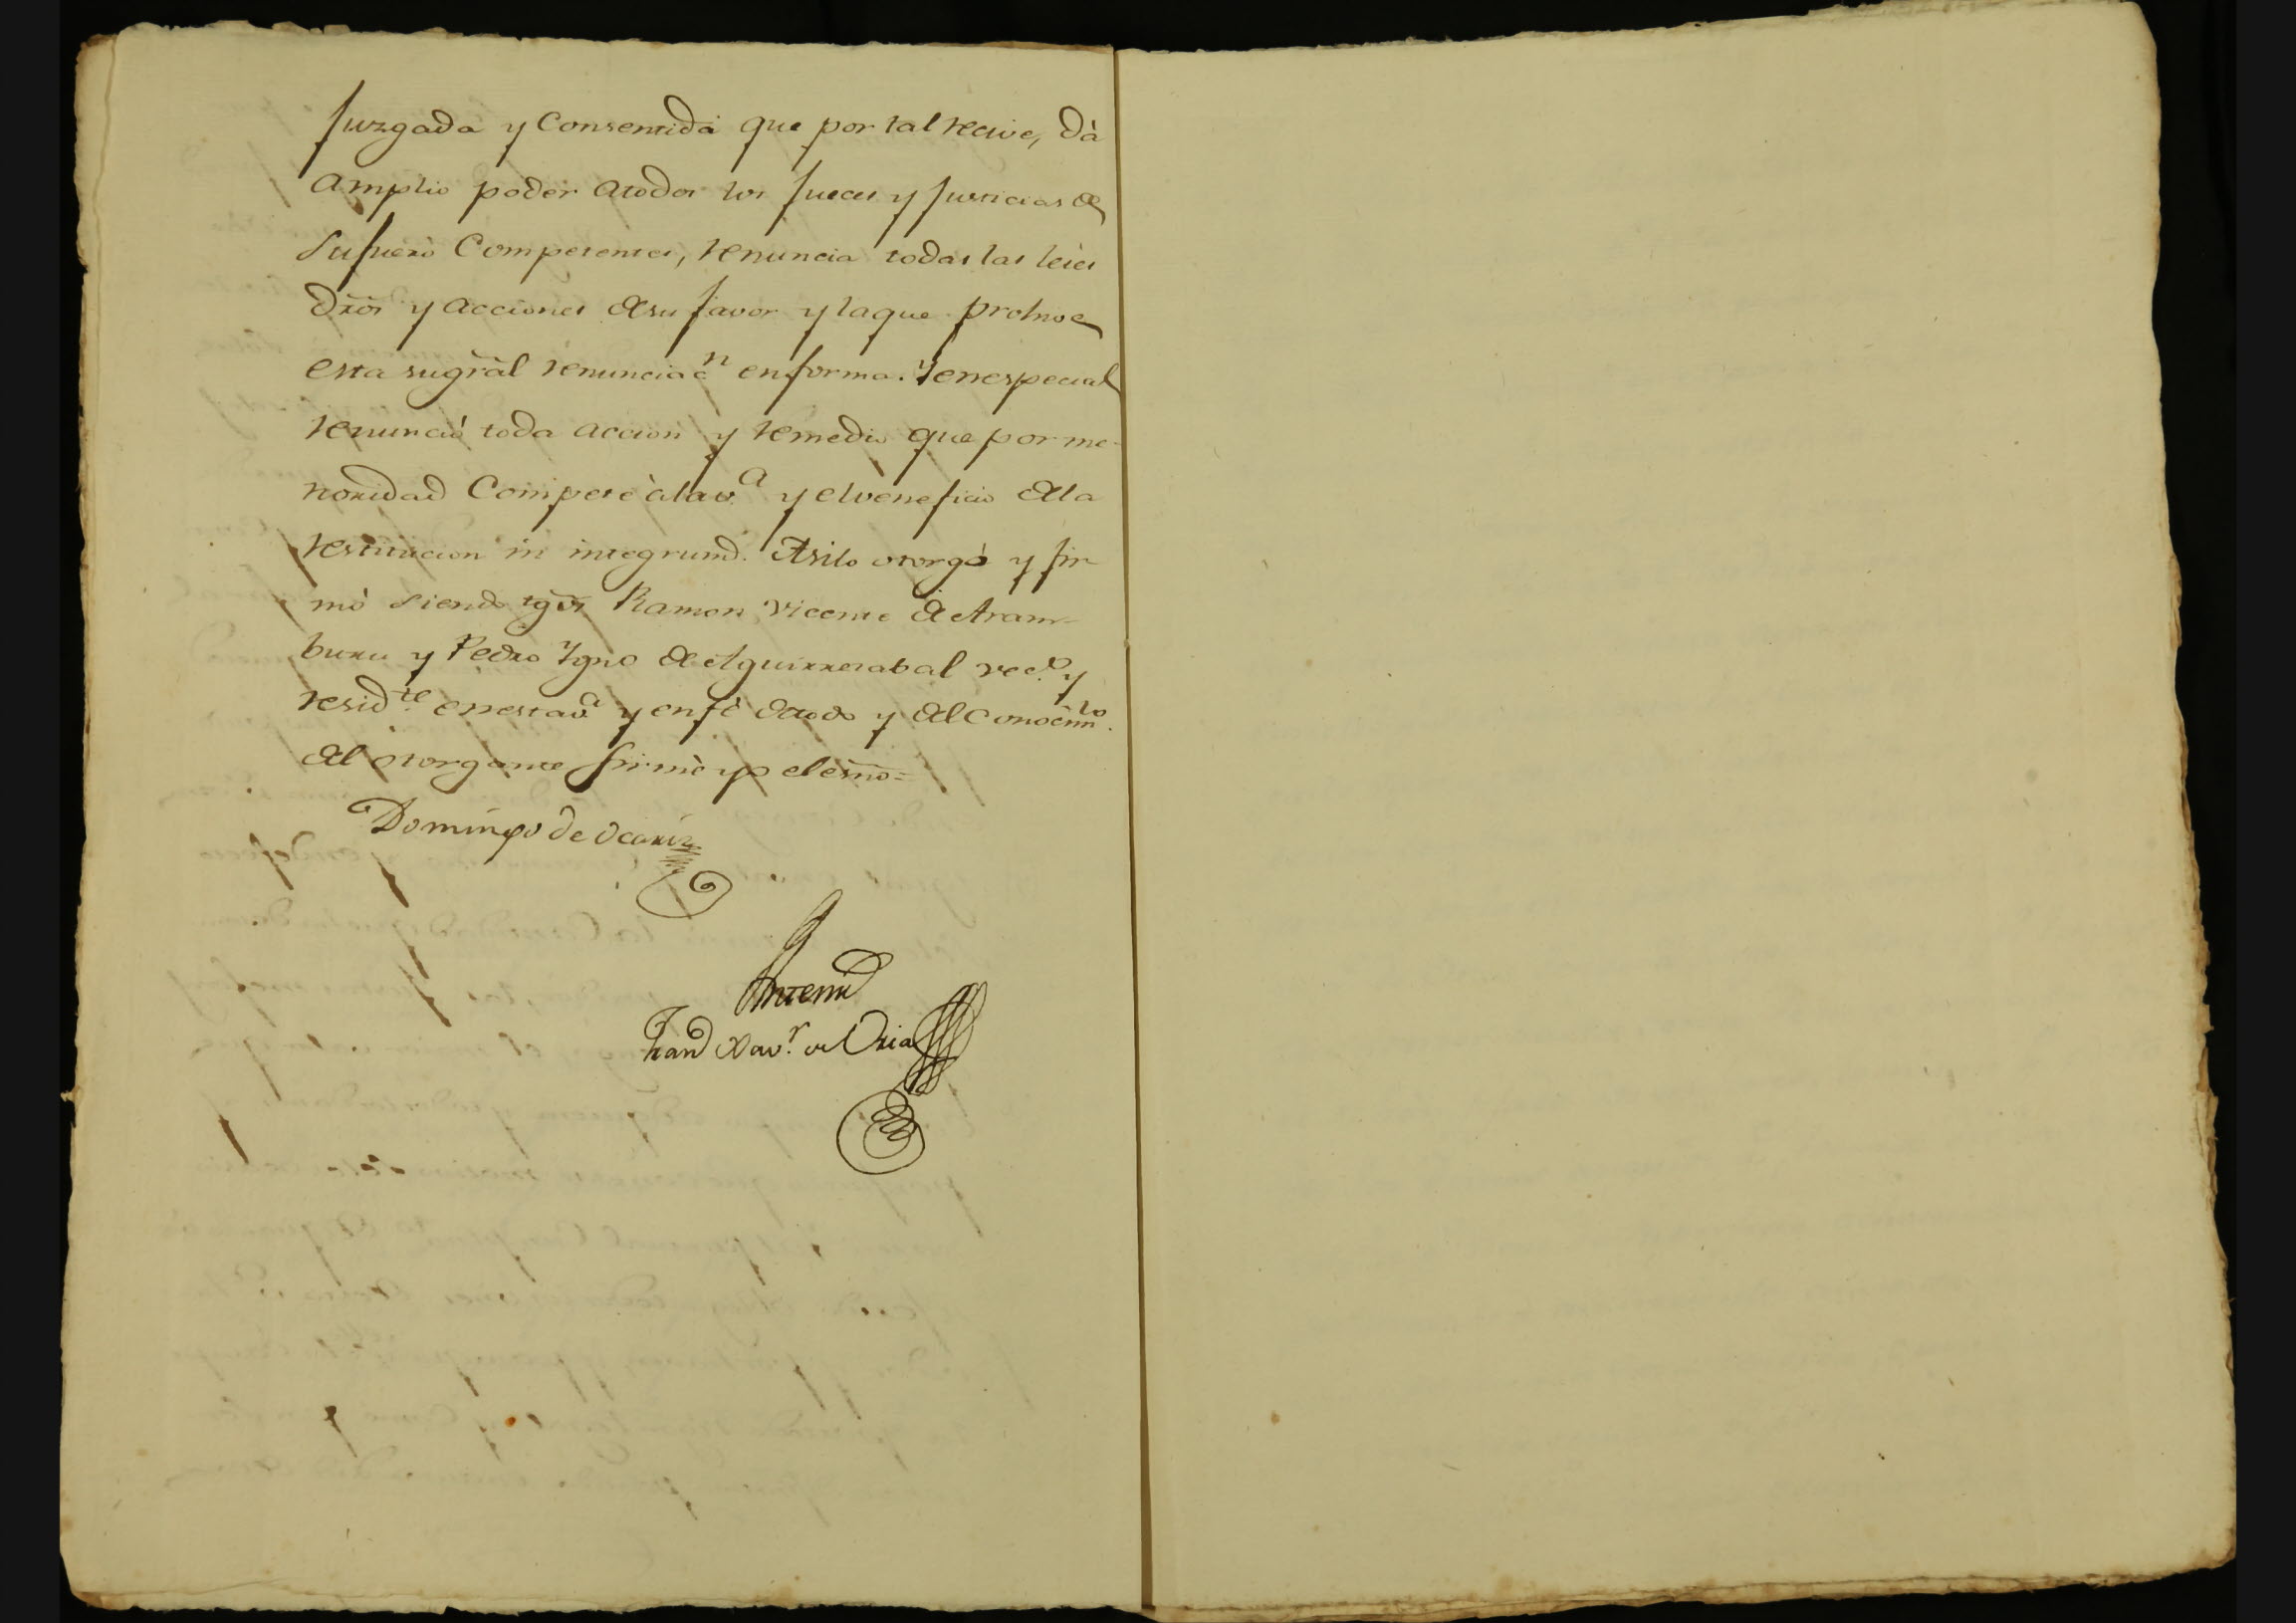 Juzgada y Consentida que por tal recive, dà
amplio poder atodos los Jueces y Justicias de
Sufuero Competentes, renuncia todas las leies
dr̃os y acciones desu favor y laque prohive
esta sugr̃al renunciac̃n enforma. Yenespecial
renunció toda accion y remedio que por me-
noridad Compete àlav.ª y elveneficio dela
restitucion in integrumd. Asilo otorgò y fir-
mò siendo tgõs Ramon Vicente de Aram-
buru y Pedro Ygnº de Aguirresabal vec.º y
resid.te enestav.ª y enfè detodo y del Conocim.to
del otorgante firmè yo elesñο=
Domingo de Ocariz
Antemi
Franco Xav.r de Oria